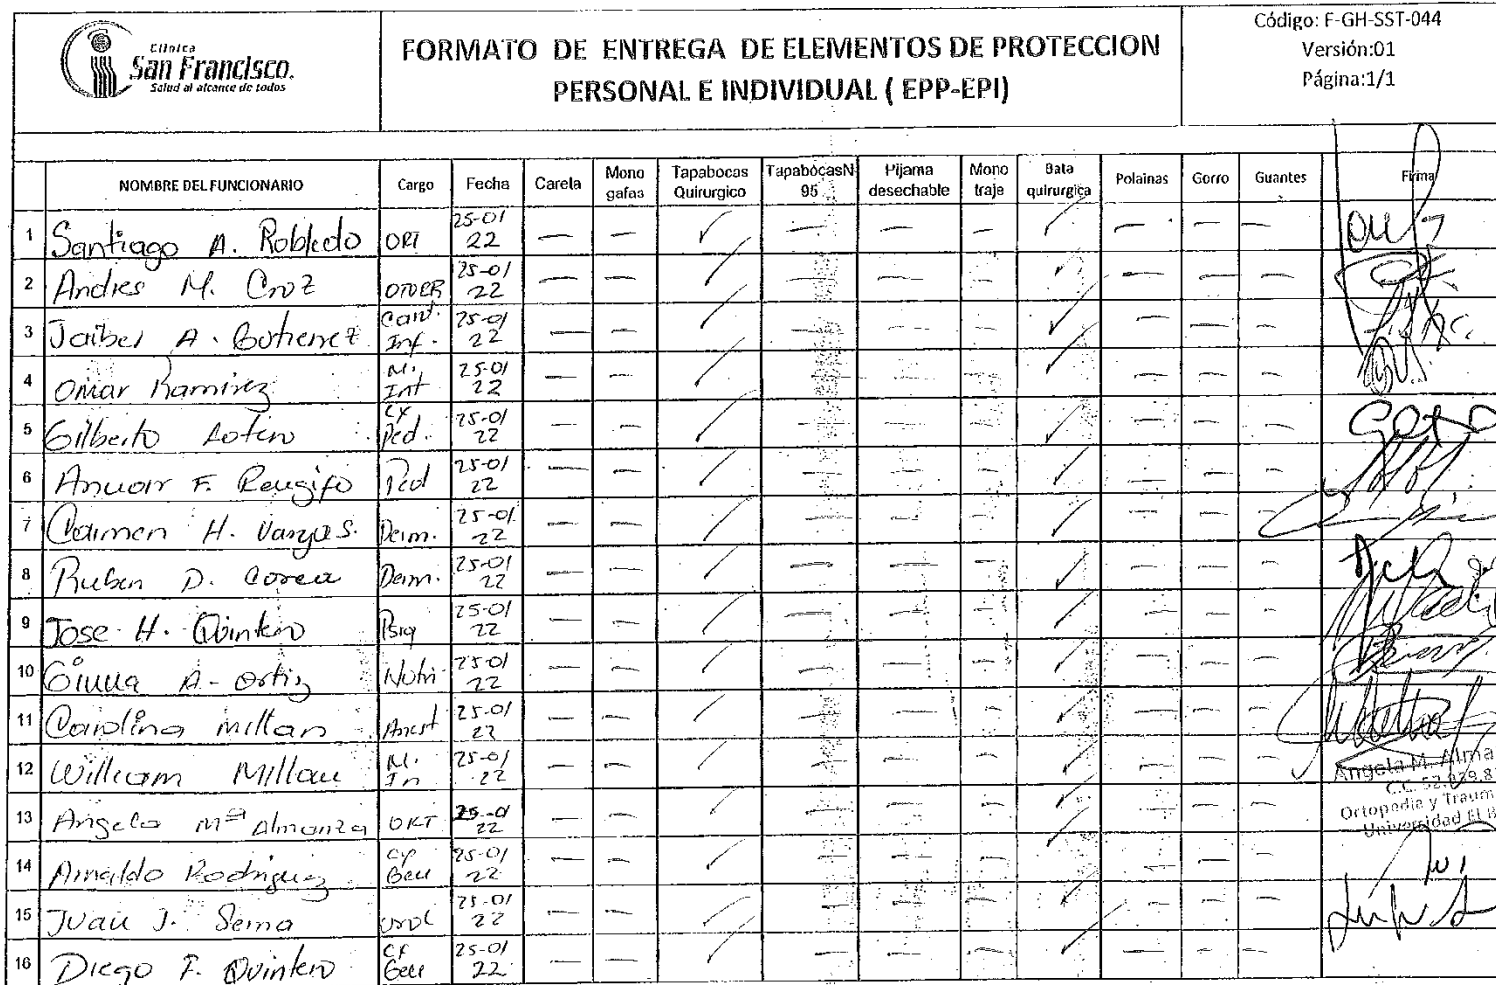 Clínica
San Francisco.
Salud al alcance de todos
FORMATO DE ENTREGA DE ELEMENTOS DE PROTECCION
PERSONAL E INDIVIDUAL ( EPP-EPI)
Código: F-GH-SST-044
Versión:01
Página:1/1
NOMBRE DEL FUNCIONARIO Cargo Fecha Careta Mono gafas Tapabocas Quirurgico TapabocasN 95 Pijama desechable Mono traje Bata quirurgica Polainas Gorro Guantes Firma
1 Santiago A. Robledo ORT 25-01 22 — — ✓ — — — ✓ — — —
2 Andres M. Cruz 25-01 22 — — ✓ — — — ✓ — — —
3 Jaiber A. Gutierrez Inf. 25-01 22 — — ✓ — — — ✓ — — —
4 Omar Ramirez M. Int 25-01 22 — — ✓ — — — ✓ — — —
5 Gilberto Lotero Cx Ped. 25-01 22 — — ✓ — — — ✓ — — —
6 Anuar F. Rengifo Ped 25-01 22 — — ✓ — — — ✓ — — —
7 Carmen H. Vargas. Derm. 25-01 22 — — ✓ — — — ✓ — — —
8 Ruben D. Correa Derm. 25-01 22 — — ✓ — — — ✓ — — —
9 Jose H. Quintero Psiq 25-01 22 — — ✓ — — — ✓ — — —
10 A. Ortiz Nutri 25-01 22 — — ✓ — — — ✓ — — —
11 Carolina Millan Anest 25-01 22 — — ✓ — — — ✓ — — —
12 William Millan M. In 25-01 22 — — ✓ — — — ✓ — — —
13 Angela Mª Almanza ORT 25-01 22 — — ✓ — — — ✓ — — —
Angela M. Alma
C.C. 52.
Ortopedia y Traum
Universidad El B
14 Arnaldo Rodriguez 25-01 22 — — ✓ — — — ✓ — — —
15 Juan J. Serna Urol 25-01 22 — — ✓ — — — ✓ — — —
16 Diego F. Quintero 25-01 22 — — ✓ — — — ✓ — — —